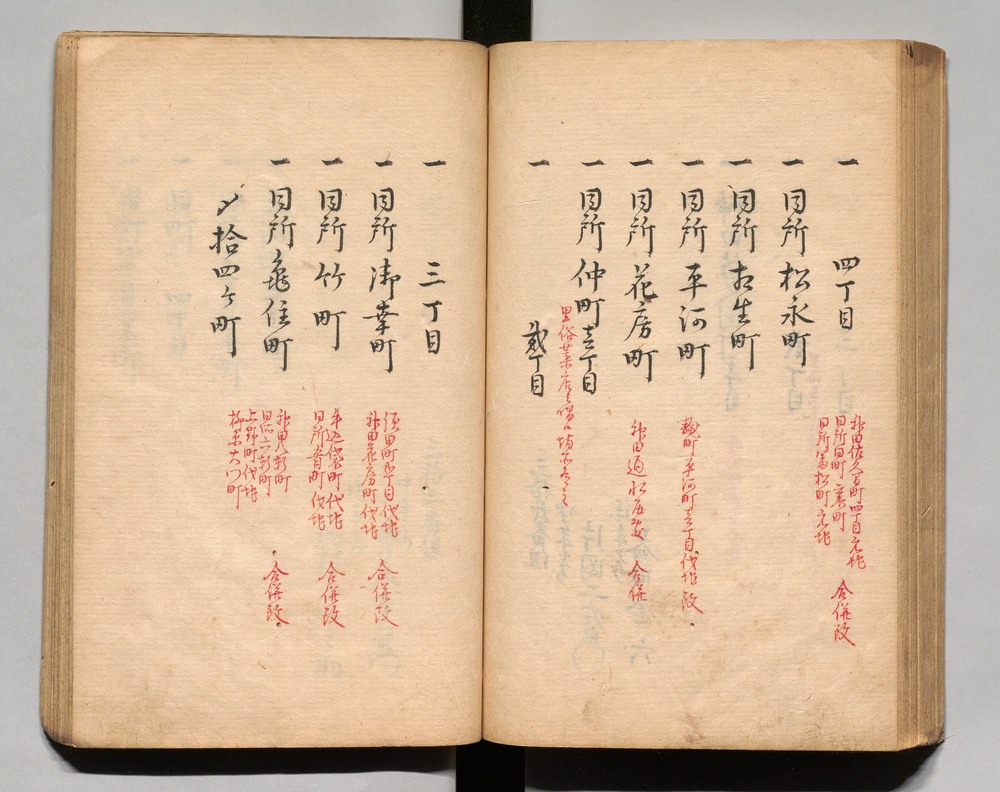 一 四丁目
一 同所松永町
神田佐久間町四丁目元地
同所同町裏町
同所富松町元地
合併改
一 同所相生町
一 同所平河町
麹町平河町壱丁目代地改
一 同所花房町
神田
合併
一 同所仲町壱丁目
里俗
一 弐丁目
一 三丁目
一 同所御幸町
須田町弐丁目代地
神田花房町代地
合併改
一 同所竹町
牛込袋町代地
同所肴町代地
合併改
一 同所亀住町
神田八軒町
同所六軒町
上野町代地
大門町
合併改
〆拾四ケ町